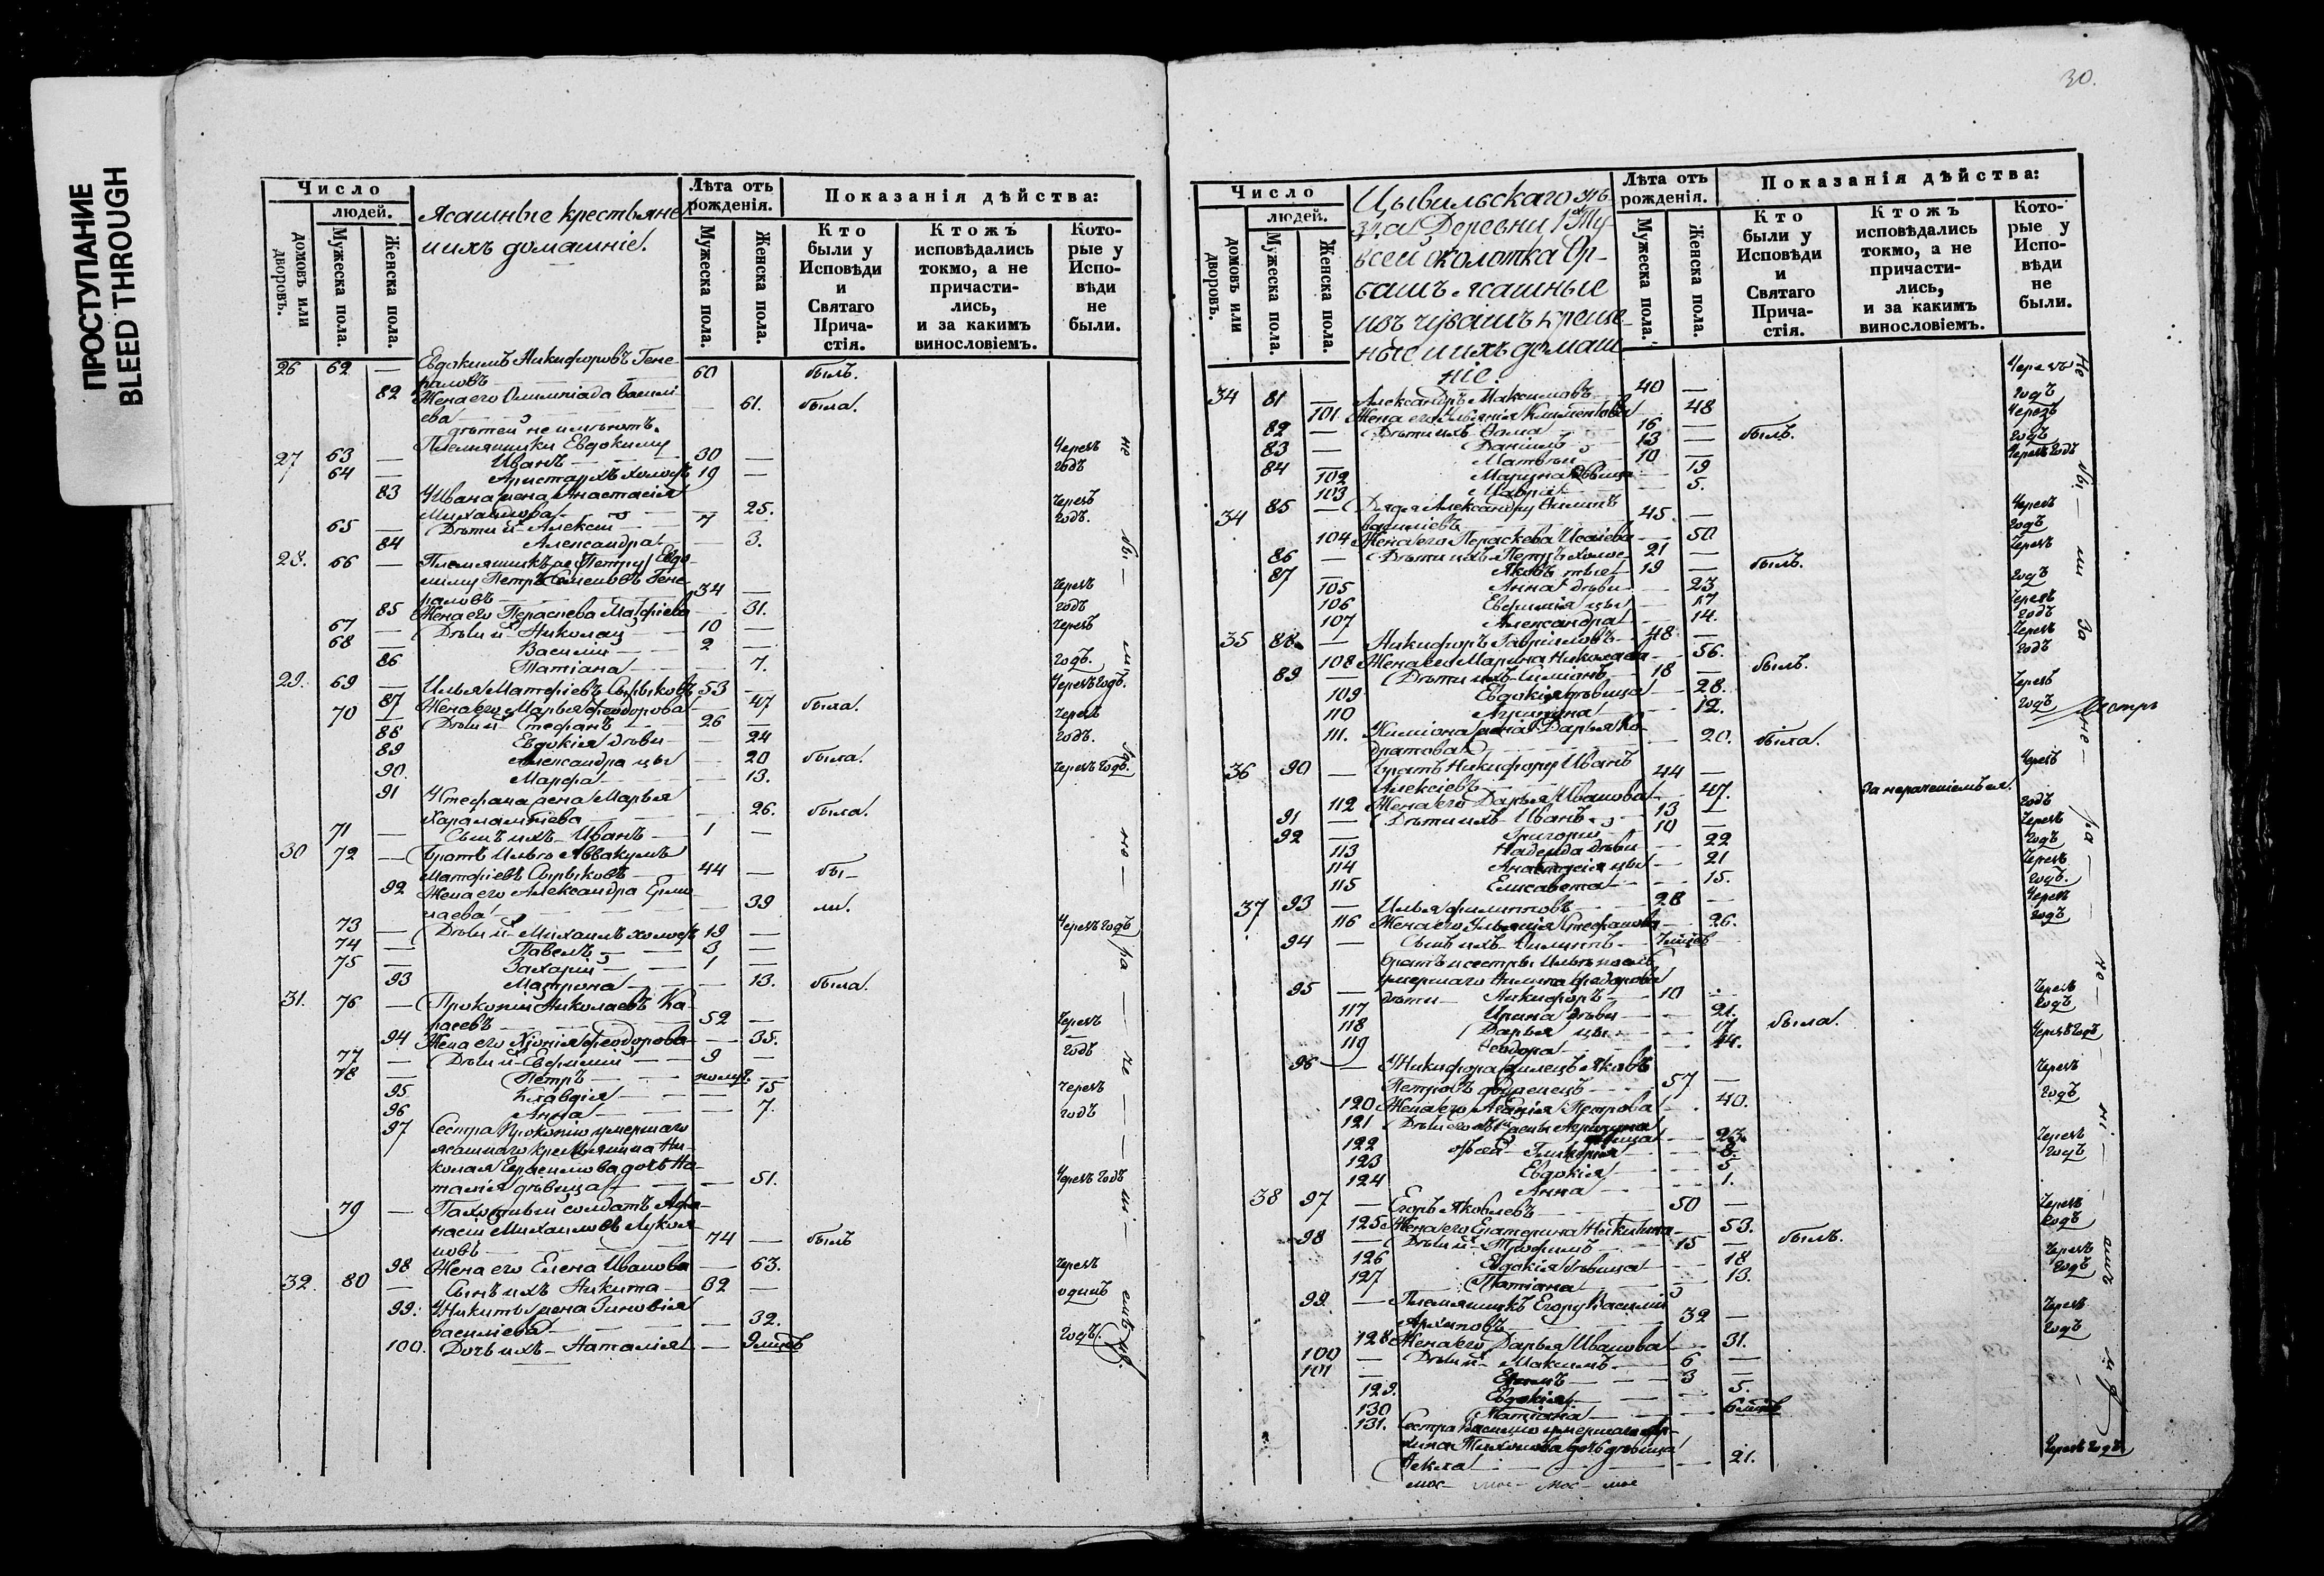 ПРОСТУПАНИЕ
BLEED THROUGH
Число
людей.
домовъ или дворовъ.
Мужеска пола.
Женска пола.
Ясашные крестьяне
и ихъ домашніе.
Лѣта отъ рожденія.
Мужеска пола.
Женска пола.
Показанія дѣйства:
Кто были у Исповѣди и Святаго Прича-стія.
Ктожъ исповѣдались токмо, а не причасти-лись, и за какимъ винословіемъ.
Кото-рые у Испо-вѣди не были.
26 62 — Евдокимъ Никифоровъ Гене-
раловъ 60 былъ.
82 Жена его Олимпіада Василі-
ева — 61. была.
дѣтей не имѣютъ.
Племянники Евдокиму
27 63 — Иванъ 30 — Черезъ
64 — Аристархъ холостъ 19 — годъ
83 У Ивана жена Анастасія
Михайлова — 25. Черезъ
65 — Дѣти и Алексѣй 7 — годъ.
84 Александра — 3.
28. 66 — Племянникъ же Петру Евдо-
киму Петръ Семеновъ Гене-
раловъ 34 — Черезъ
85 Жена его Параскева Матфіева — 31. годъ
67 — Дѣти и Николай 10 — Черезъ
68 — Василій 2 —
86 Татіана — 7. годъ.
29. 69 — Илья Матфіевъ Сырыковъ 53 — Черезъ годъ.
87 Жена его Марья Феодорова — 47 была.
70 — Дѣти и Стефанъ 26 — Черезъ
88 Евдокія дѣви — 24 годъ.
89 Александра цы — 20 была.
90. Марфа — 13. Черезъ годъ.
91 У Стефана жена Марья
Харалампіева — 26. была.
71 — Сынъ ихъ Иванъ 1 —
30 72 — Братъ Ильѣ Аввакумъ
Матфіевъ Сырыковъ 44 — бы-
92 Жена его Александра Ермо-
лаева — 39 ли.
73 — Дѣти и Михаилъ холостъ 19 — Черезъ годъ
74 — Павелъ 3 —
75 — Захарій 1 —
93 Матрона — 13. была.
31. 76 — Прокопій Николаевъ Ка-
расевъ 52 — Черезъ
94 Жена его Хіонія Феодорова — 35.
77 — Дѣти и Евфимій 9 — годъ
78 — Петръ полуг. —
95 Клавдія — 15 Черезъ
96 Анна — 7. годъ
97 Сестра Прокопію умершаго
ясашнаго крестьянина Ни-
колая Герасимова дочь На-
талія дѣвица — 51. Черезъ годъ
79 — Пахотный солдатъ Афа-
насій Михаиловъ Лукоя-
новъ 74 — былъ
98 Жена его Елена Иванова — 63. Черезъ
32. 80 — Сынъ ихъ Никита 32 — одинъ
99. У Никиты жена Зиновія
Василіева — 32.
100. Дочь ихъ Наталія — 9 мцовъ годъ.
30.
Число
людей.
домовъ или дворовъ.
Мужеска пола.
Женска пола.
Цывильскаго уѣ-
зда Деревни 1й Ту-
всей околотка Ор-
башъ ясашные
изъ чувашъ креще-
ные и ихъ домаш
ніе.
Лѣта отъ рожденія.
Мужеска пола.
Женска пола.
Показанія дѣйства:
Кто были у Исповѣди и Святаго Прича-стія.
Ктожъ исповѣдались токмо, а не причасти-лись, и за какимъ винословіемъ.
Кото-рые у Испо-вѣди не были.
34 81 — Александръ Максимовъ 40 — Черезъ
101. Жена его Ульянія Климентова — 48 годъ
82 — Дѣти ихъ Фома 16 — Черезъ
83 — Даніилъ 13 — былъ. годъ
84 Матвѣй 10 — Черезъ годъ
102 Марина дѣвица — 19
103 Марія — 5.
34 85 — Дядя Александру Филипъ
Василіевъ 45. — Черезъ
104 Жена его Пераскева Исаіева — 50 годъ
86 — Дѣти ихъ Петръ холос- 21 — Черезъ
87 Яковъ тые 19 — былъ.
105 Анна дѣви — 23 годъ
106 Евфимія цы — 17 Черезъ
107 Александра — 14. годъ
35 88. — Никифоръ Гавріиловъ 48 — Черезъ
108 Жена его Марина Николаева — 56. годъ
89 — Дѣти ихъ Симіонъ 18 — былъ.
109 Евдокія дѣвица — 28. Черезъ
110 Агрипина — 12. годъ
111. У Симіона жена Дарья Ко-
дратова — 20. была.
36 90 — Братъ Никифору Иванъ
Алексіевъ 44 — Черезъ
112 Жена его Дарья Иванова — 47. За нераченіемъ ея. годъ
91 — Дѣти ихъ Иванъ 13 — Черезъ
92 — Григорій 10 — годъ
113 Надежда дѣви — 22 Черезъ
114 Анастасія цы — 21 годъ.
115 Елисавета — 15. Черезъ
37 93 — Илья Филиповъ 28 — годъ
116 Жена его Ульянія Стефанова — 26.
94 — Сынъ ихъ Филипъ 7 мцовъ
Братъ и сестры Ильѣ послѣ
умершаго Филипа Феодорова
95 — дѣти Никифоръ 10 — Черезъ
117 Ирина дѣви — 21. годъ
118 Дарья цы — 17 была.
119 Феодора — 14. Черезъ годъ
96 — У Никифора жилецъ Яковъ
Петровъ 57 — Черезъ
120 Жена его Агафія Петрова — 40. годъ
121 Агрипина
дѣвица — 23. Черезъ
122 8. годъ
123 Евдокія — 5
124 Анна — 1.
38 97 — Егоръ Яковлевъ 50 — Черезъ
125 Жена его Екатерина Никитина — 53. годъ
98 — Дѣти и Трофимъ 15 — былъ.
126 Евдокія дѣвица — 18 Черезъ
127 Татіана — 13. годъ
99. — Племянникъ Егору Василій
Архиповъ 32 — Черезъ
128 Жена его Дарья Иванова — 31. годъ
100 — Дѣти и Максимъ 6 —
101 — 3 —
129. Евдокія — 5.
130 Татіана — 6 мцовъ
131. Сестра Василію умершаго Ар-
хипа Тихонова дочь дѣвица
Фекла — 21. Черезъ годъ.